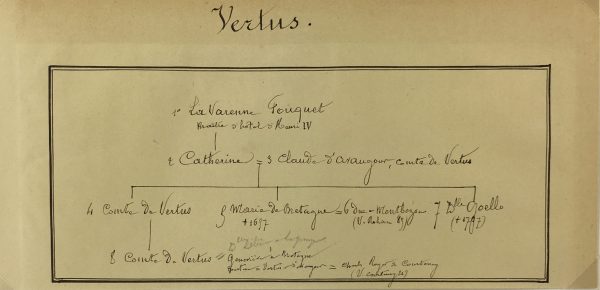 Vertus.
1º La Varenne Fouquet
Maître d'hôtel d'Henri IV
2 Catherine = 3 Claude d'Avaugour, comte de Vertus
4 Comte de Vertus 5 Marie de Bretagne = 6 Duc de Montbazon 7 Dlle Goello
+ 1657 (V. Rohan 89)
8 Comte de Vertus =
de Bretagne
= Charles Roger de Courtenay
(V. Courtenay